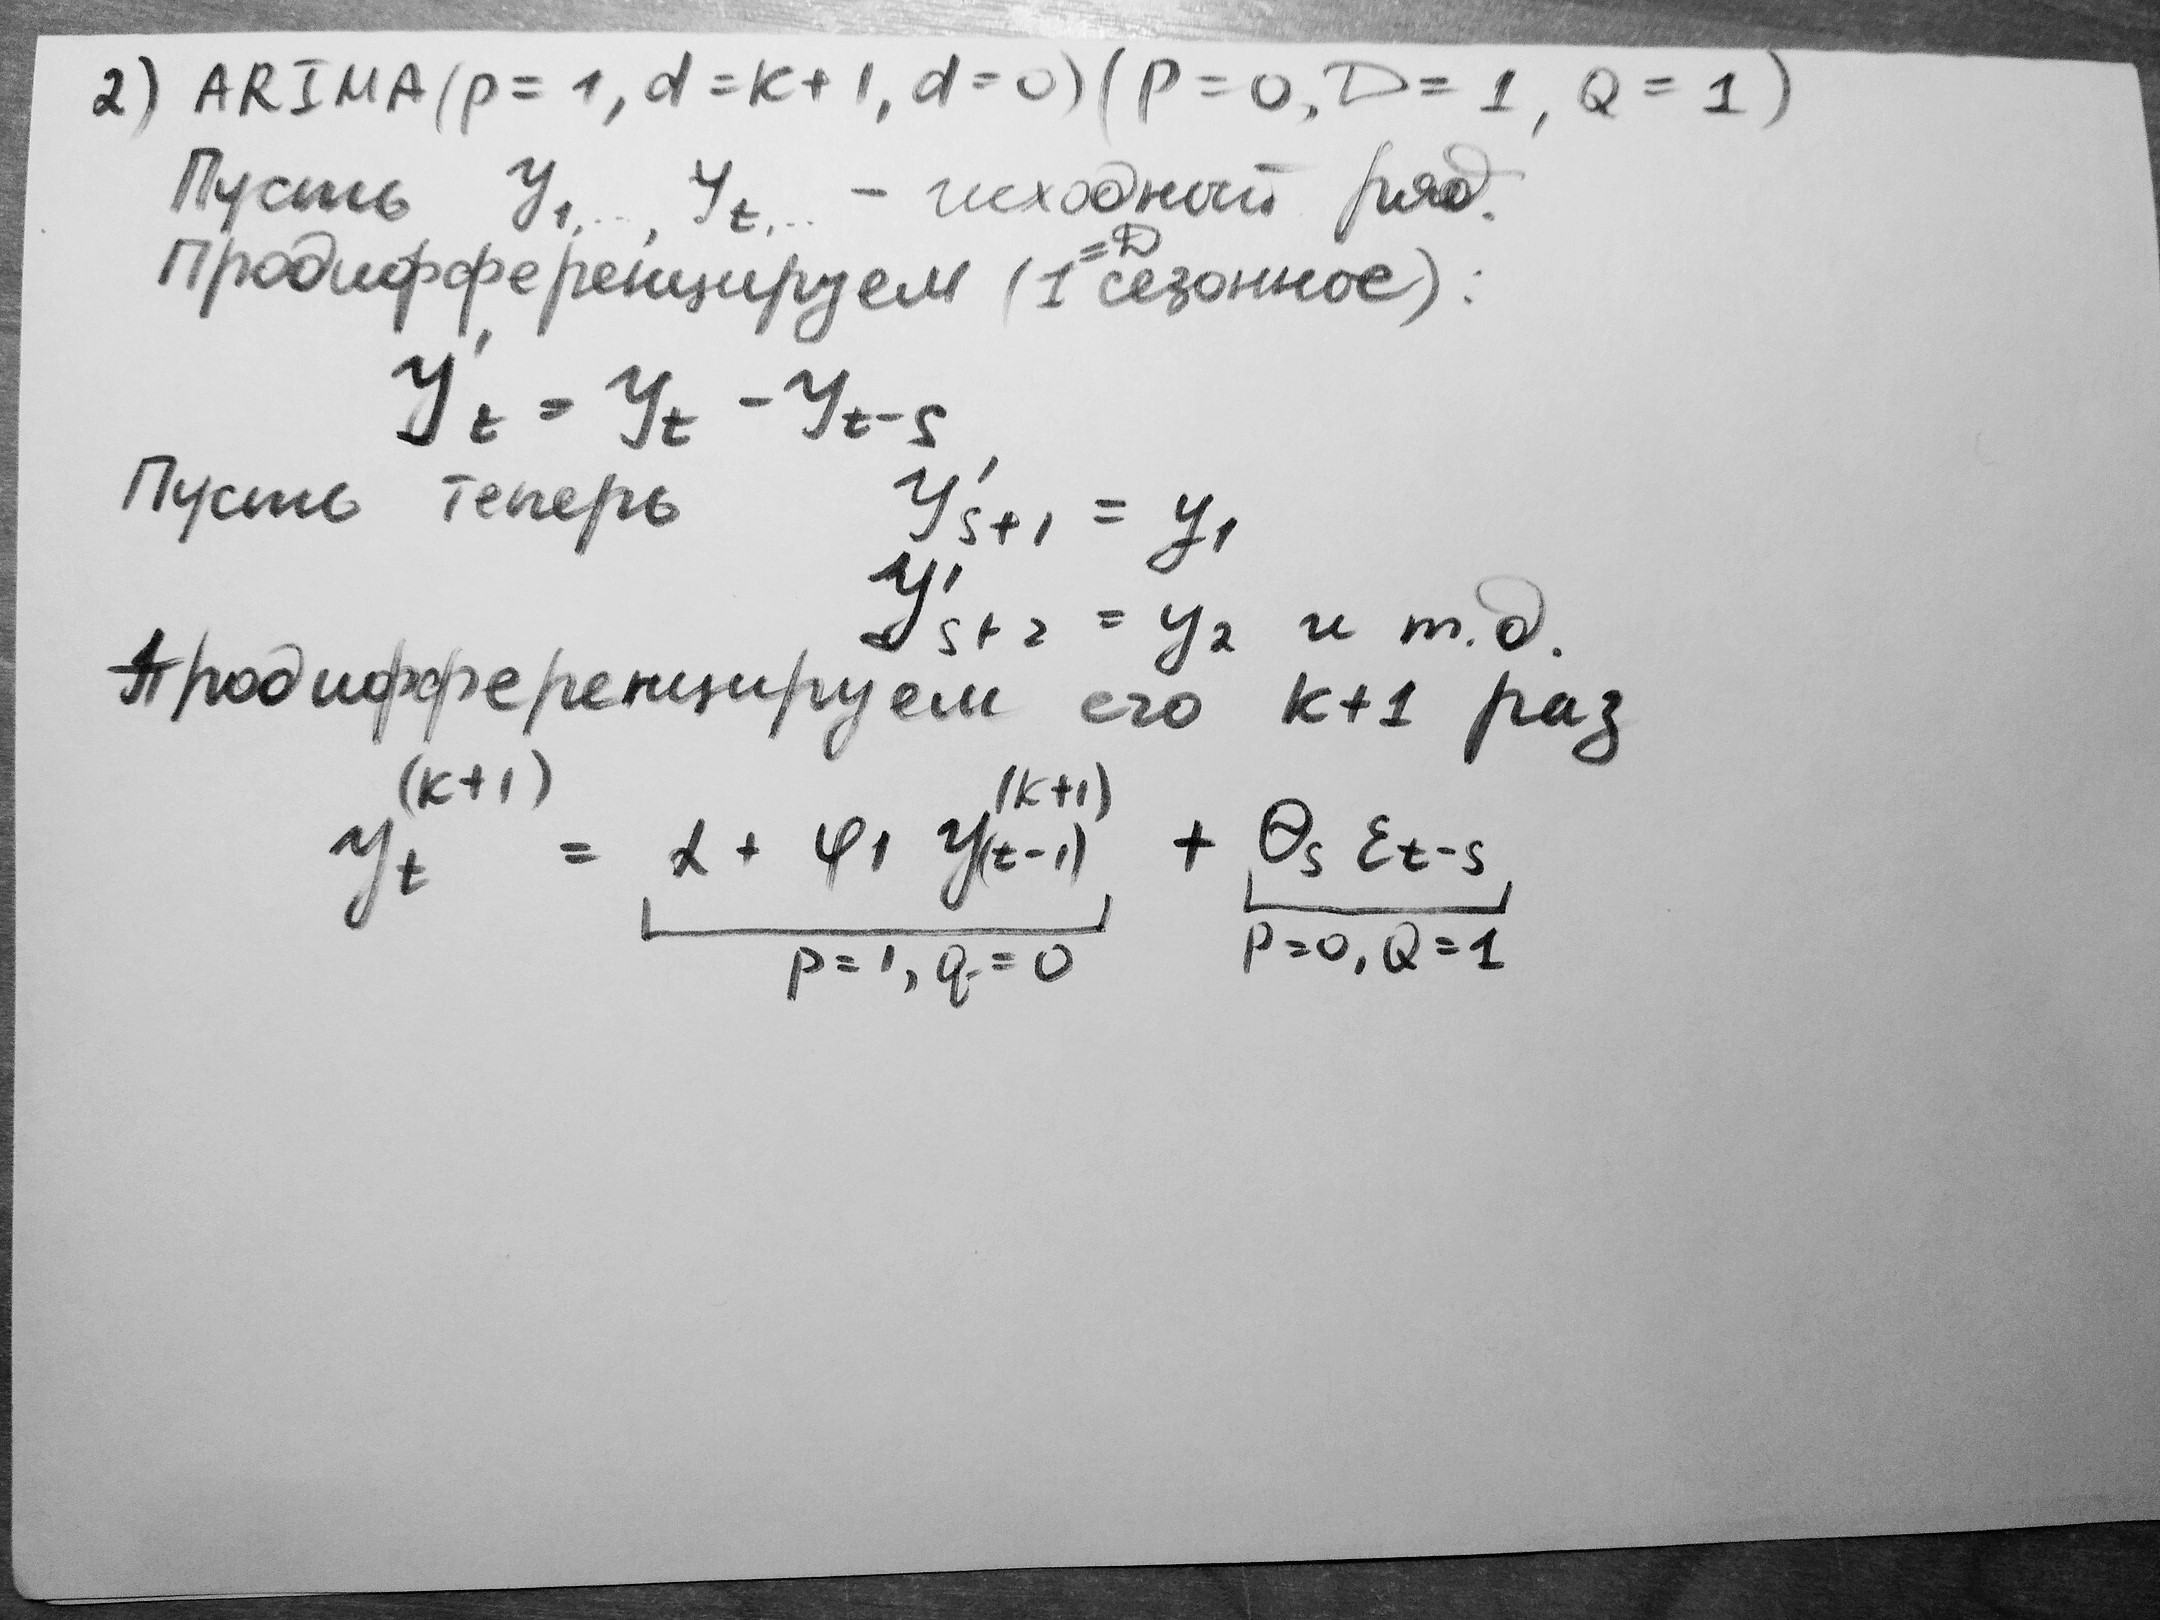 2) ARIMA(p=1, d=k+1, d=0)(P=0, D=1, Q=1)
Пусть y₁,..., yₜ,... - исходный ряд.
Продифференцируем (1=D сезонное):
y'ₜ = yₜ - yₜ₋ₛ
Пусть теперь y'ₛ₊₁ = y₁
y'ₛ₊₂ = y₂ и т.д.
Продифференцируем его k+1 раз
yₜ^(k+1) = α + φ₁ y₍ₜ₋₁₎^(k+1) + Θₛ εₜ₋ₛ
p=1, q=0 P=0, Q=1